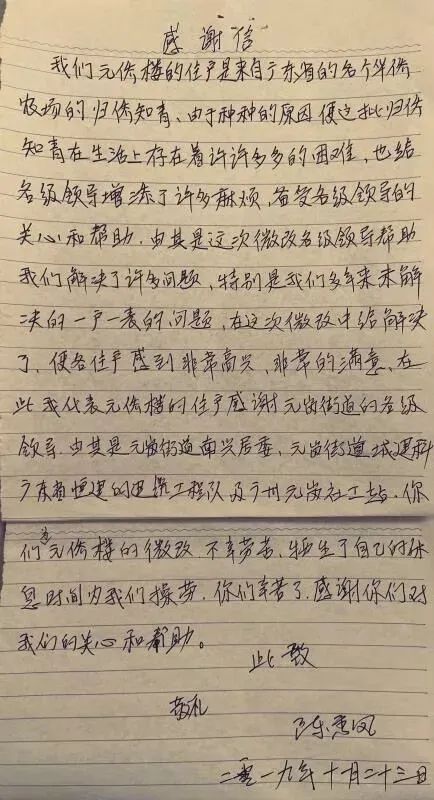 感谢信
我们元侨楼的住户是来自广东省的各个华侨
农场的归侨知青、由于种种的原因使这批归侨
知青在生活上存在着许许多多的困难，也给
各级领导增添了许多麻烦，备受各级领导的
关心和帮助．由其是这次微改各级领导帮助
我们解决了许多问题，特别是我们多年来未解
决的一户一表的问题，在这次微改中给解决
了，使各住户感到非常高兴、非常的满意、在
此我代表元侨楼的住户感谢元岗街道的各级
领导．由其是元岗街道南兴居委、元岗街道城建科
广东省恒建的建筑工程队及广州元岗社工站．你
们为元侨楼的微改不辛劳苦、牺牲了自己的休
息时间为我们操劳．你们辛苦了．感谢你们对
我们的关心和帮助。
此致
敬礼
陈惠凤
二零一九年十月二十三日